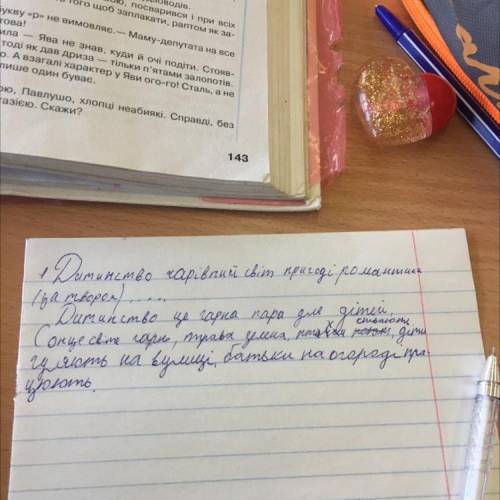 водіїв.
посварився і при всіх
того щоб заплакати, раптом як за-
букву «р» не вимовляє.— Маму-депутата на все
това!
ила — Ява не знав, куди й очі подіти. Стояв-
тоді як дав дриза — тільки п'ятами залопотів.
о. А взагалі характер у Яви ого-го! Сталь, а не
лише один буває.
ою, Павлушо, хлопці неабиякі. Справді, без
тазією. Скажи?
143
1 Дитинство чарівний світ пригоді романтики
(за твором) .....
Дитинство це гарна пара для дітей.
Сонце світе гарно, трава зелена, пташка співають, діти
гуляють на вулиці, батьки на огороді пра-
цюють.